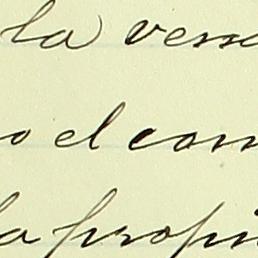 la vers
o el com
la propi